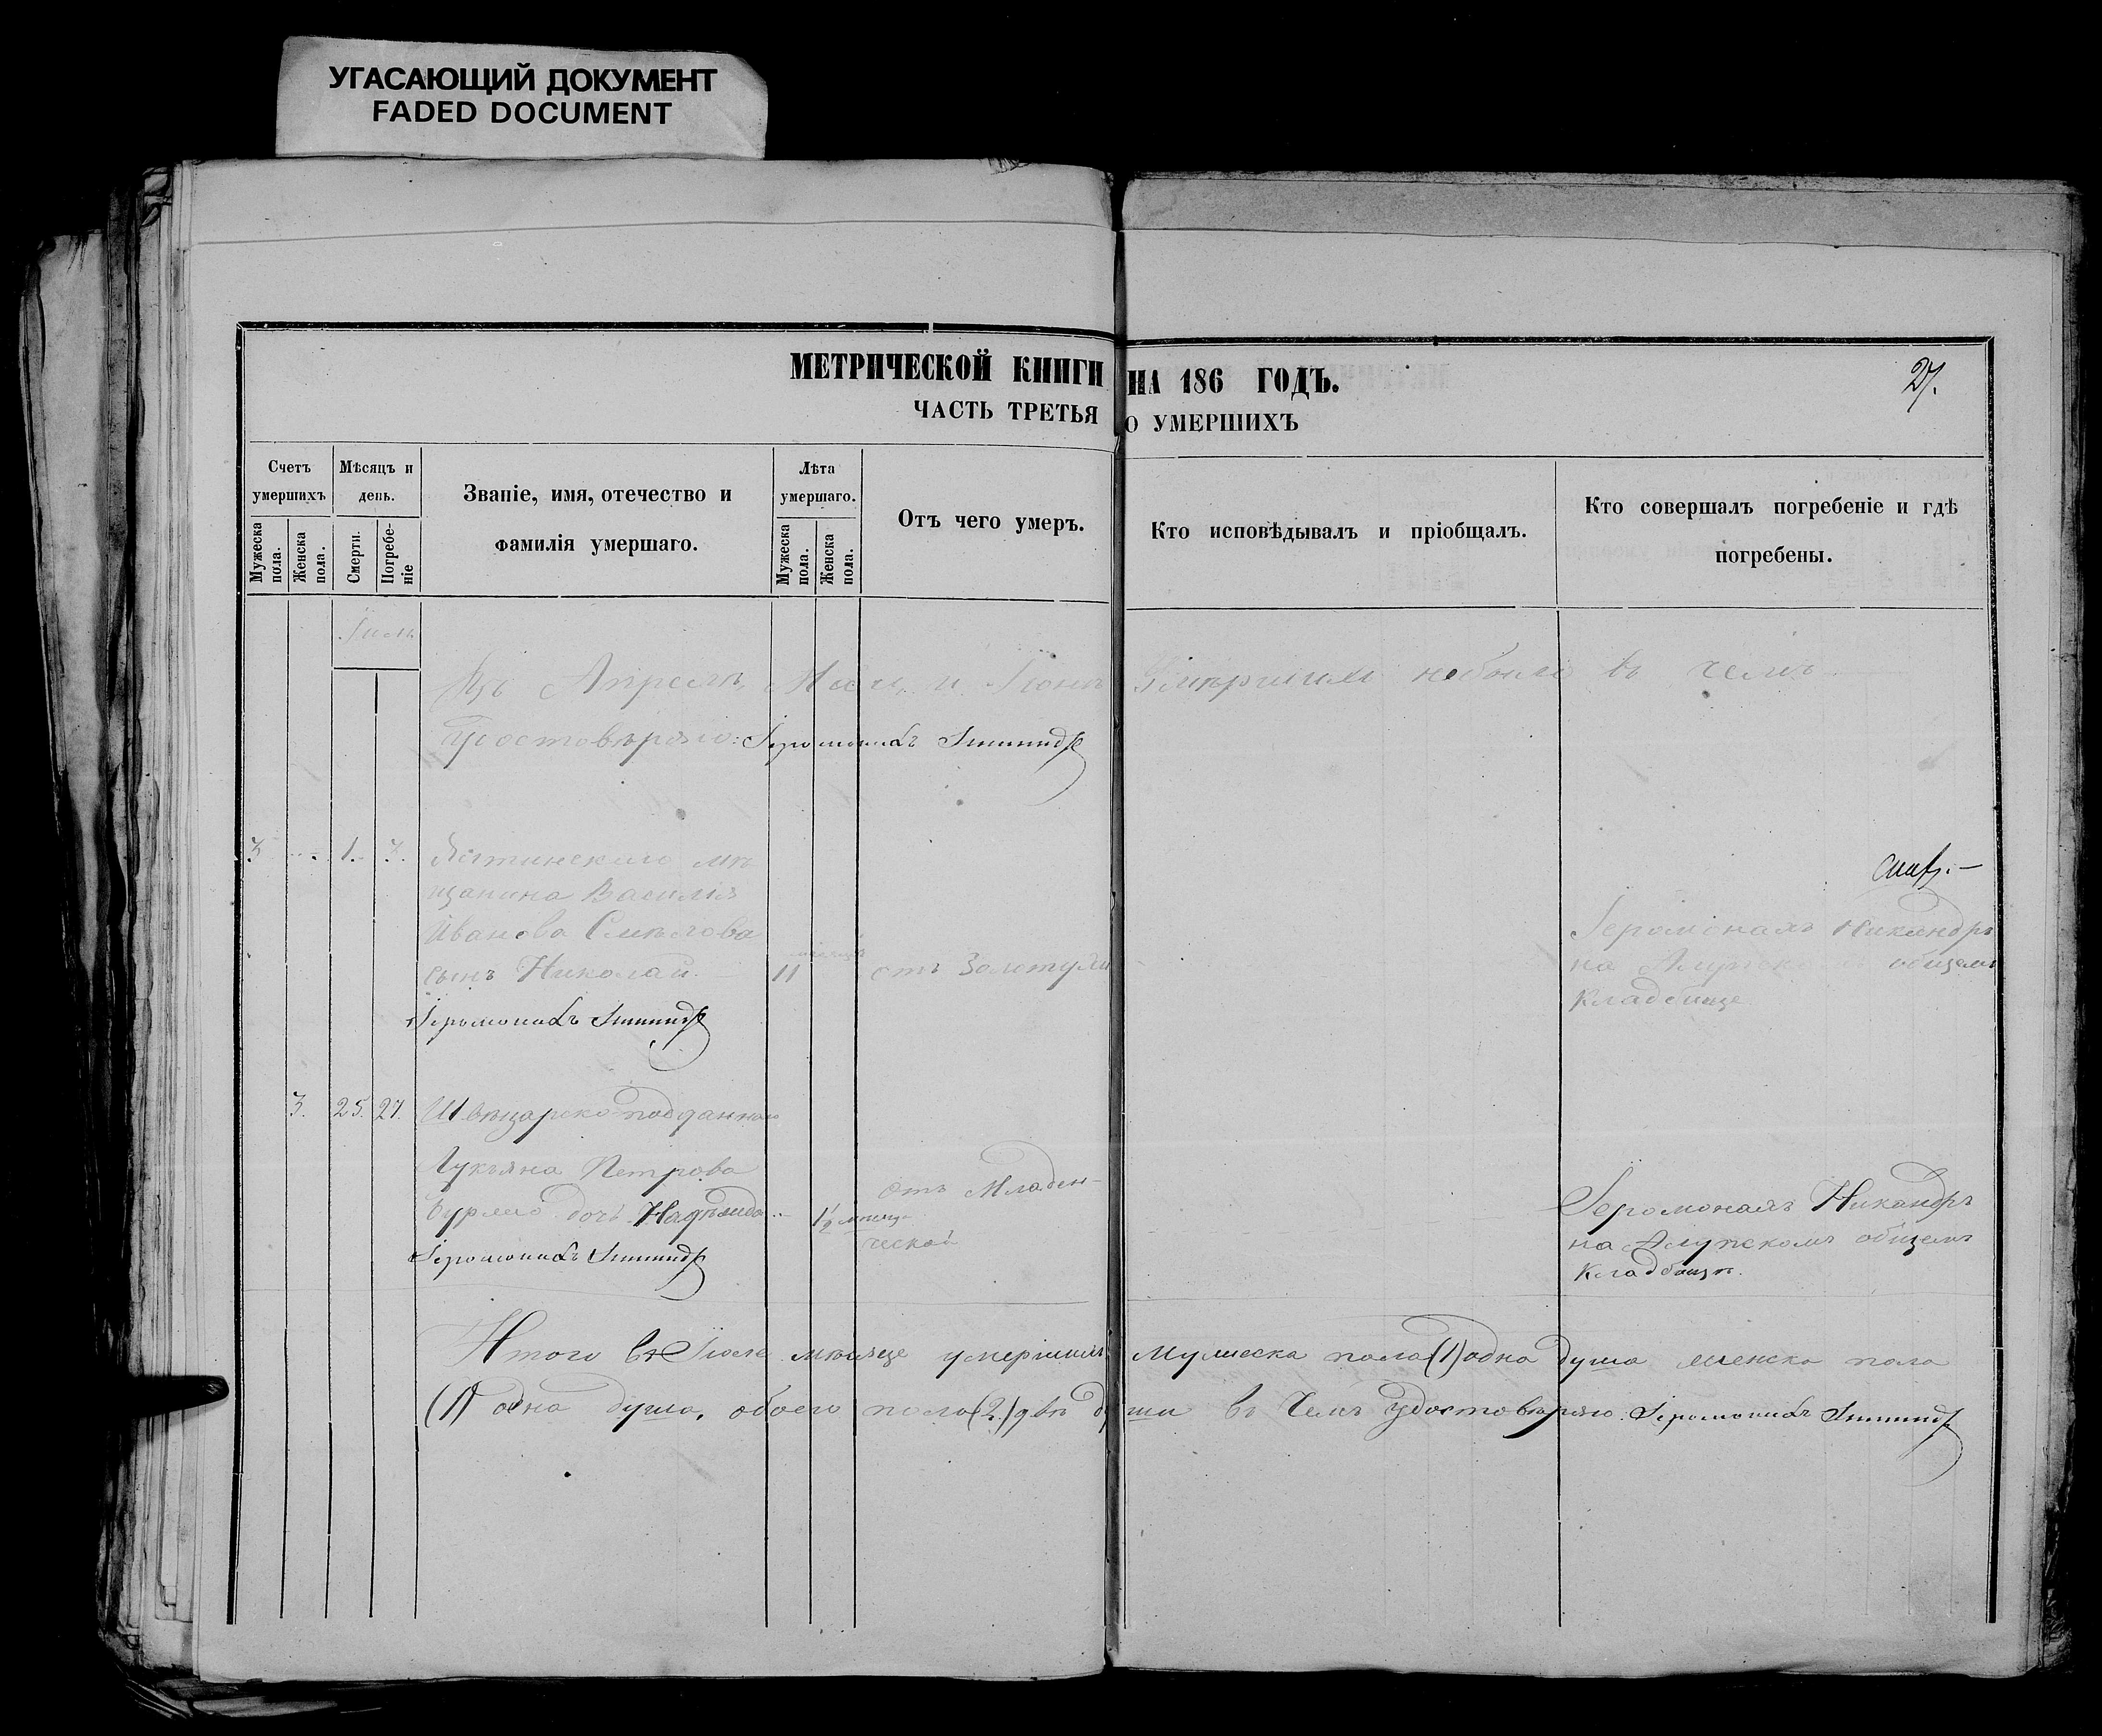 УГАСАЮЩИЙ ДОКУМЕНТ
FADED DOCUMENT
МЕТРИЧЕСКОЙ КНИГИ НА 186 ГОДЪ.
27.
ЧАСТЬ ТРЕТЬЯ О УМЕРШИХЪ
Счетъ умершихъ
Мужеска пола.
Женска пола.
Мѣсяцъ и день.
Смерти.
Погребеніе
Званіе, имя, отечество и
фамилія умершаго.
Лѣта умершаго.
Мужеска пола.
Женска пола.
Отъ чего умеръ.
Кто исповѣдывалъ и пріобщалъ.
Кто совершалъ погребеніе и гдѣ
погребены.
Въ Апрелѣ Маи и Іюнѣ Умершихъ небыло въ чемъ
Удостовѣряю: Іеромонахъ
3 1. 3. Ялтинскаго мѣ
щанина Василія
Иванова
сынъ Николай 11 отъ Золотухи
Іеромонахъ Никандръ
на общемъ
Кладбище
Іеромонахъ
3. 25. 27. Швѣцарско подданнаго
Лукьяна Петрова
дочь 1½
отъ Младен-
ческой
Іеромонахъ Никандръ
на Алупскомъ общемъ
Кладбищѣ.
Іеромонахъ
Итого въ Іюле мѣсяце умершихъ Мужеска пола (1) одна душа женска пола
(1) одна душа, обоего пола (2) двѣ души въ Чемъ удостовѣряю: Іеромонахъ